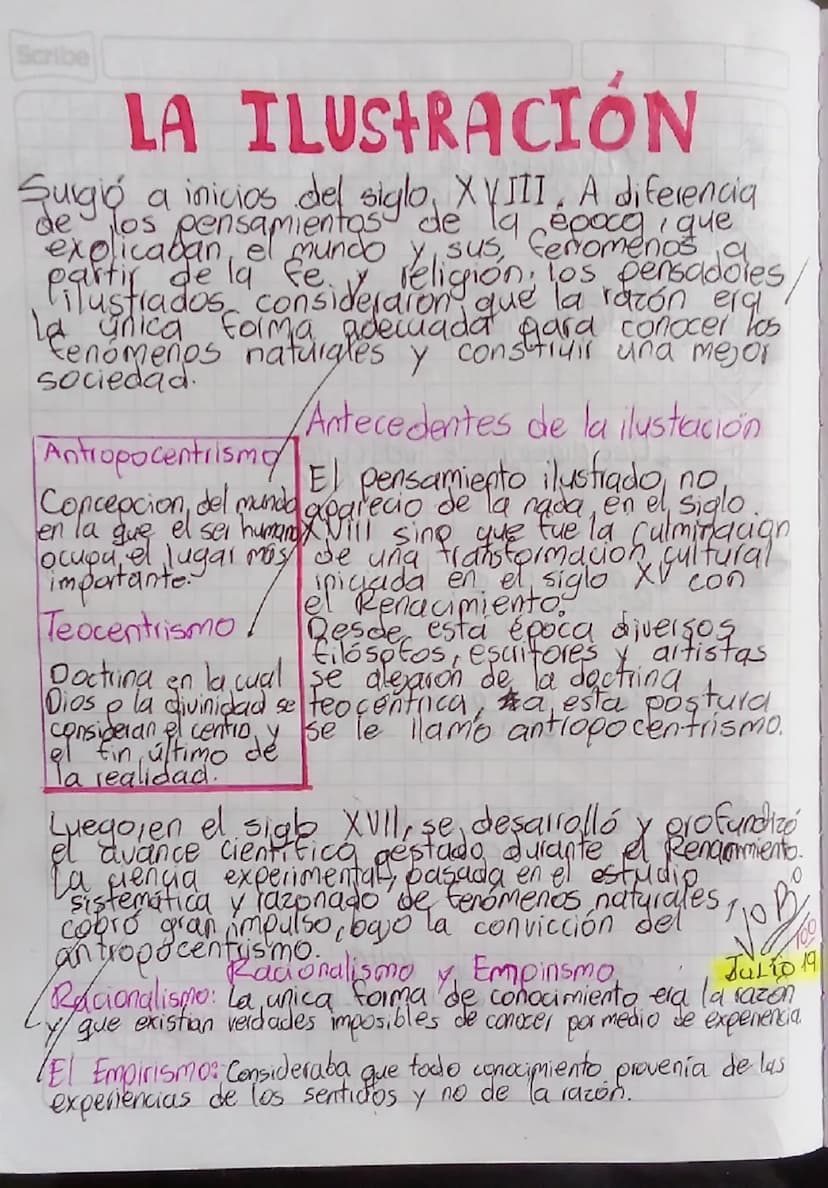 Scribe
LA ILUSTRACIÓN
Surgió a inicios del siglo XVIII. A diferencia
de los pensamientos de la época, que
explicaban el mundo y sus fenomenos a
partir de la fe y religión, los pensadores
ilustrados consideraron que la razón era
la única forma adecuada para conocer los
fenómenos naturales y construir una mejor
sociedad.
Antecedentes de la ilustración
Antropocentrismo
Concepcion del mundo
en la que el ser humano
ocupa el lugar más
importante.
Teocentrismo
Doctrina en la cual
Dios o la divinidad se
consideran el centro y
el fin último de
la realidad.
El pensamiento ilustrado no
aparecio de la nada en el siglo
XVIII sino que fue la culminación
de una transformación cultural
iniciada en el siglo XV con
el Renacimiento.
Desde esta época diversos
filósofos, escritores y artistas
se alejaron de la doctrina
teocentrica, a esta postura
se le llamó antropocentrismo.
Luego, en el siglo XVII, se desarrolló y profundizó
el avance cientifico gestado durante el Renacimiento.
La ciencia experimental, basada en el estudio
sistemática y razonado de fenómenos naturales,
cobró gran impulso, bajo la convicción del
antropocentrismo.
10
100
Julio 19
Racionalismo y Empirismo
Racionalismo: La unica forma de conocimiento era la razón
y que existian verdades imposibles de conocer por medio de experiencia
El Empirismo: Consideraba que todo conocimiento provenía de las
experiencias de los sentidos y no de la razón.